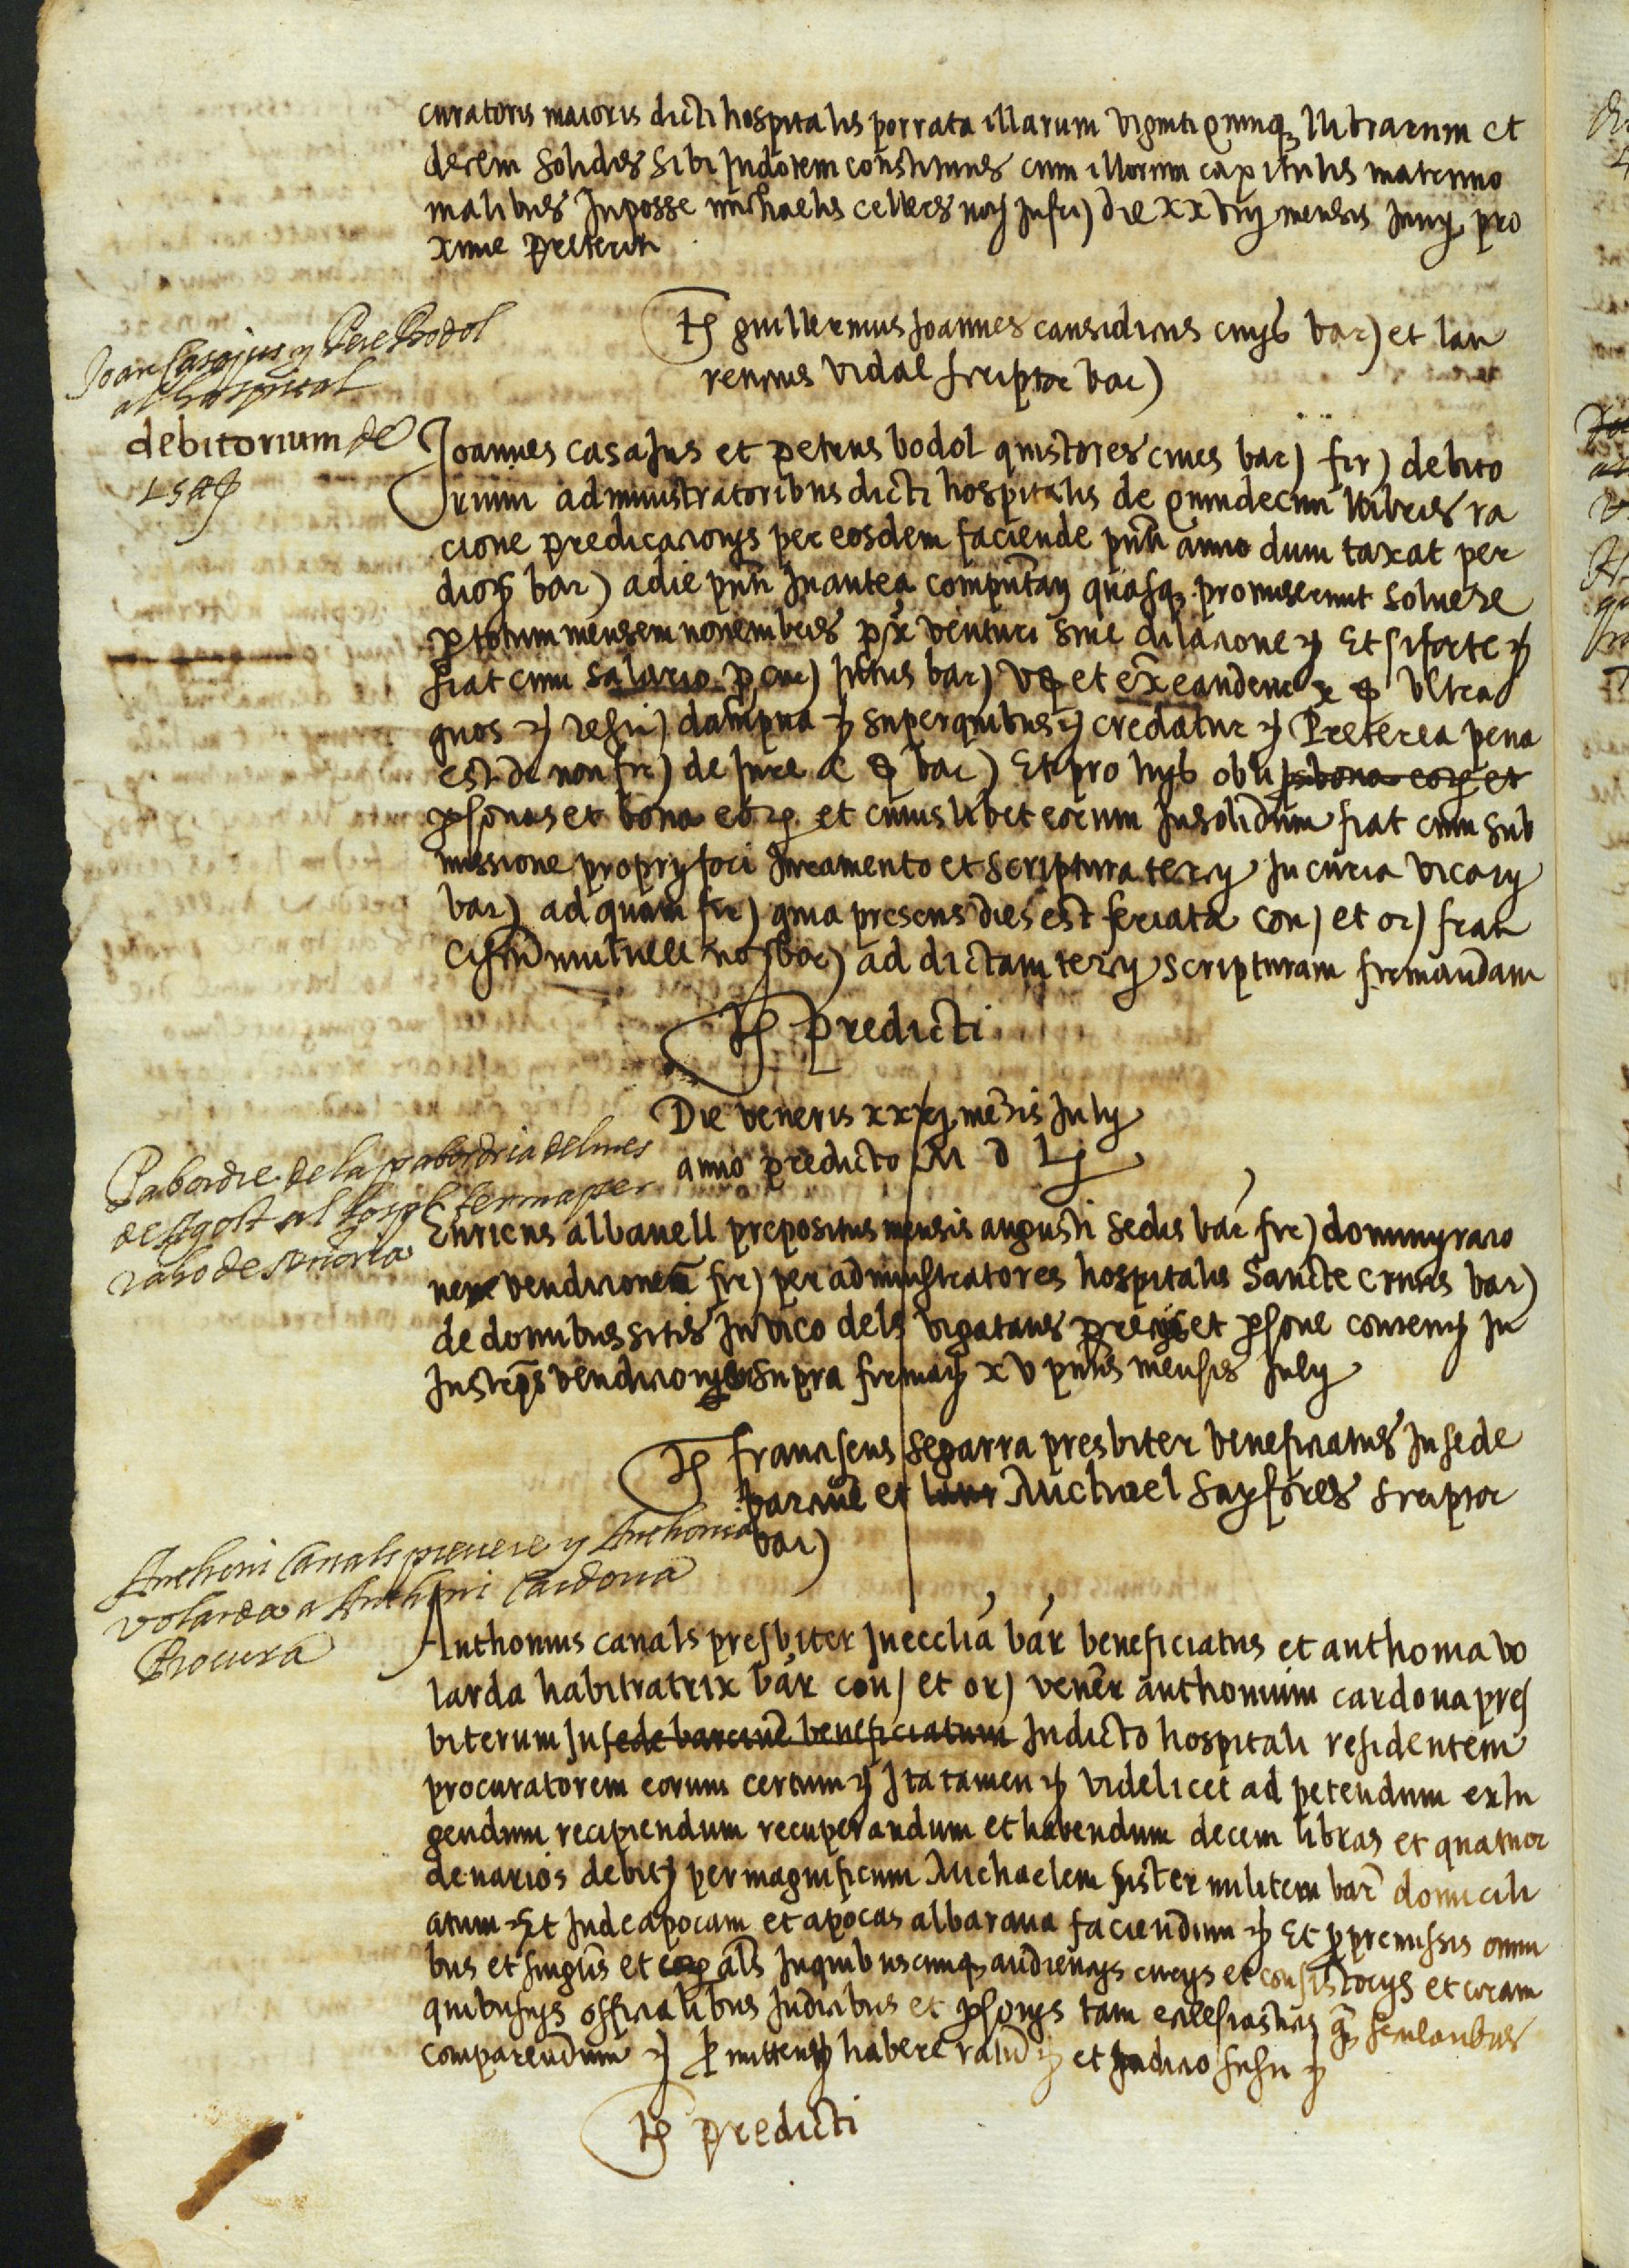 curatoris maioris dicti hospitalis porrata illarum viginti quinq, llibrarum et
decem solidis sibi Indotem constitutis cum illorum capitulis matrimo
nialibus Inposse michaelis cellers noʒ Infri) die xx viij mensis Junij pro
xime preteriti
Ts guillermus Joannes causidicus civis bar) et lau
rentius vidal scriptor bar)
Joan Casajus y Pere Bodol
al hospital
debitorium de
Joannes casaJus et petrus bodol quistores cives bar) fir) debito
rium administratoribus dicti hospitalis de quindecim llibris ra
cione predicacionis per eosdem faciende pnti anno dum taxat per
dioʒ bar) adie pnti Inantea computan quasq, promiserunt solvere
p totum mensem novembris px venturi sine dilacione Et siforte
fiat cum salario pcur) Intus bar) v et ex eandem x ultra
quos refii) dampna superquibus credatur Preterea pena
est de non fir) de Jure bar) Et pro hijs obli bona eorʒ et
psonas et bona eorʒ et cuiuslibet eorum Insolidum fiat cum sub
missione proprij fori Juramento et scriptura tercij In curia vicarij
bar) ad quam fir) quia presens dies est feriata con) et or) fran
ad dictam tercij scripturam firmandam
Ts predicti
Die veneris xxxj mesis July
anno predicto M D Lj
Pabordre de la pabordria del mes
de Agost al hospl ferma per
raho de senoria
Enricus albanell prepositus mensis augusti sedis bar fir) dominij racio
ne vendicionem fir) per administratores hospitalis Sancte crucis bar)
de domibus sitis In vico dels vigatans precijs et psone contents In
Instrs vendicionis supra firmaʒ xv pntis mensis July
Ts franciscus segarra presbiter beneficiatus In sede
barcine et laur Michael sayfores scriptor
bar)
Anthoni Canals prevere y Anthonia
volarda a Anthoni Cardona
Procura
Anthonius canals presbiter In ecclia bar beneficiatus et anthonia vo
larda habitratrix bar con) et or) vener anthonium cardona pres
biterum In sede barcine beneficiatum Indicto hospitali residentem
procuratorem eorum certum Ita tamen videlicet ad petendum exhi
gendum recipiendum recuperandum et habendum decem libras et quatuor
denarios debitʒ per magnificum Michaelem sister militem bar domicili
atum Et Inde apocam et apocas albarana faciendum Et p premissis omni
bus et singlis et als In quibuscumq, audiencijs curijs et consistorijs et coram
quibusvis officialibus Judicibus et psonis tam ecclesiasticis q secularibus
comparendum pmittens habere ratu et Judicio sisti
Ts predicti